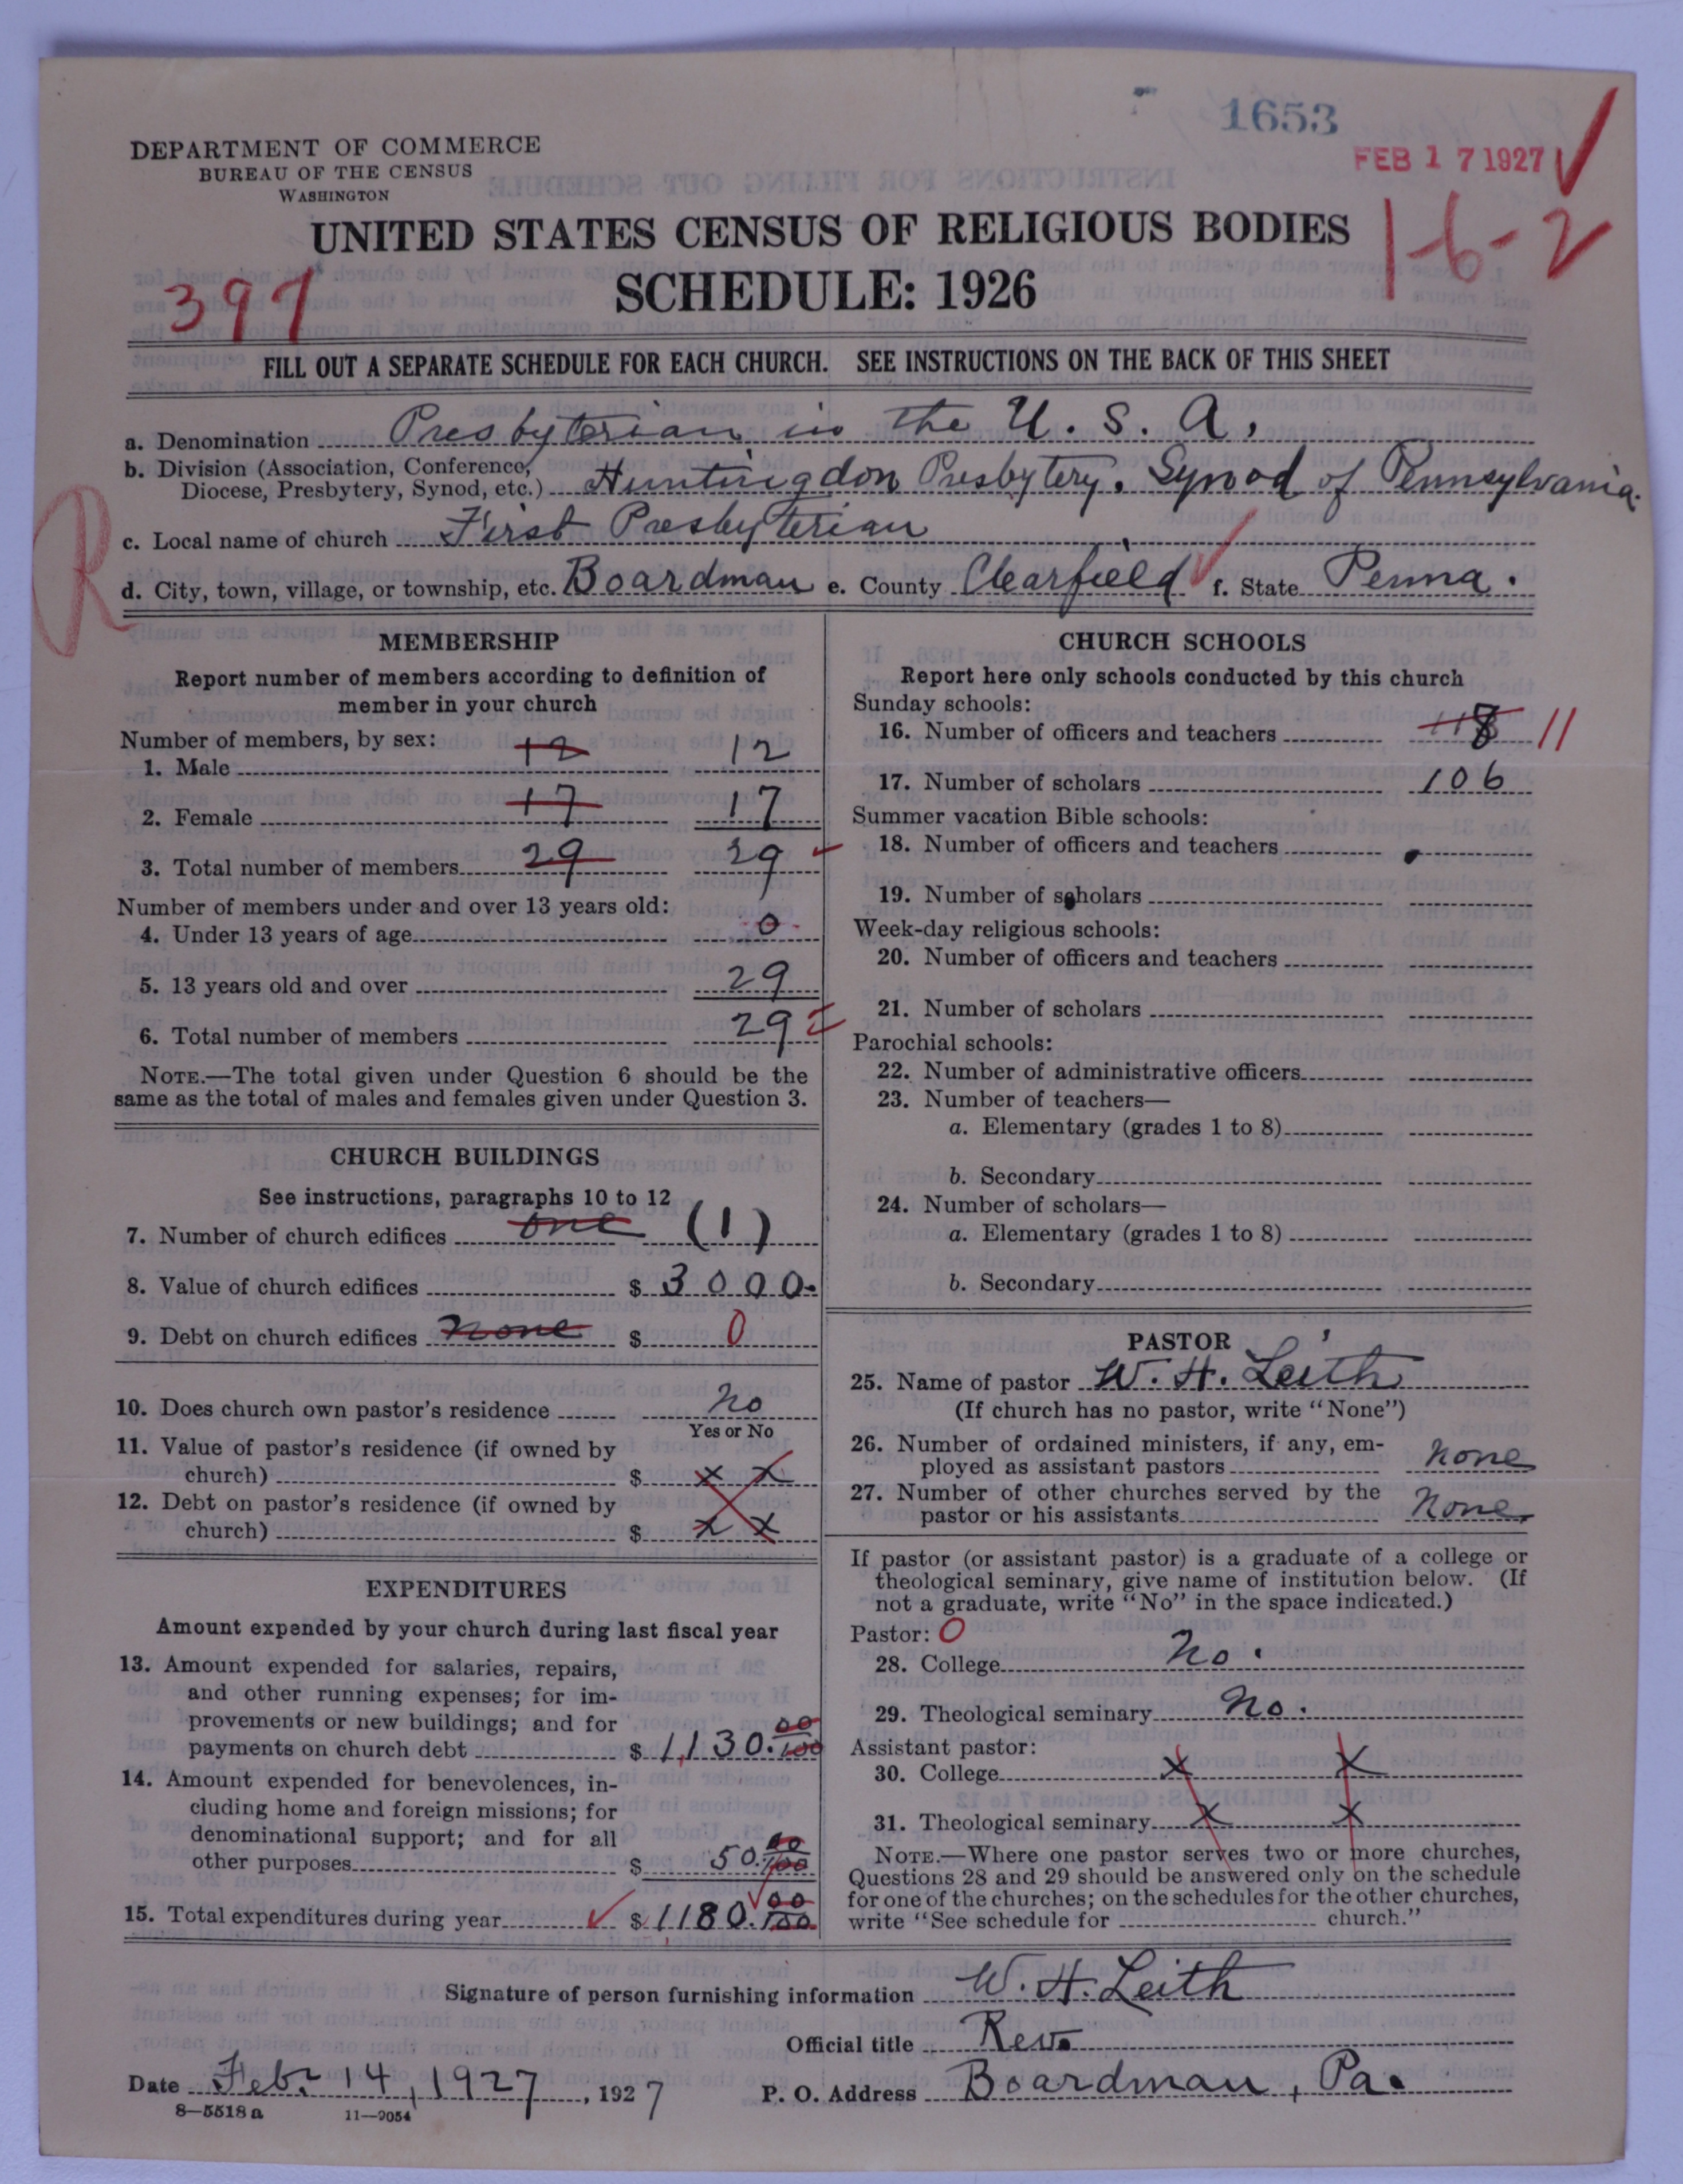 1653
FEB 17 1927
DEPARTMENT OF COMMERCE
BUREAU OF THE CENSUS
WASHINGTON
UNITED STATES CENSUS OF RELIGIOUS BODIES
1-6-2
SCHEDULE: 1926
397
FILL OUT A SEPARATE SCHEDULE FOR EACH CHURCH. SEE INSTRUCTIONS ON THE BACK OF THIS SHEET
a. Denomination Presbyterian in the U. S. A.
b. Division (Association, Conference,
Diocese, Presbytery, Synod, etc.) Huntingdon Presbytery. Synod of Pennsylvania.
R
c. Local name of church First Presbyterian
d. City, town, village, or township, etc. Boardman e. County Clearfield f. State Penna.
MEMBERSHIP
Report number of members according to definition of
member in your church
Number of members, by sex:
1. Male 12 12
2. Female 17 17
3. Total number of members 29 29
Number of members under and over 13 years old:
4. Under 13 years of age 0
5. 13 years old and over 29
6. Total number of members 29
NOTE.—The total given under Question 6 should be the
same as the total of males and females given under Question 3.
CHURCH BUILDINGS
See instructions, paragraphs 10 to 12
7. Number of church edifices one (1)
8. Value of church edifices $ 3000.
9. Debt on church edifices none $ 0
10. Does church own pastor's residence no
Yes or No
11. Value of pastor's residence (if owned by
church) $ x x
12. Debt on pastor's residence (if owned by
church) $ x x
EXPENDITURES
Amount expended by your church during last fiscal year
13. Amount expended for salaries, repairs,
and other running expenses; for im-
provements or new buildings; and for
payments on church debt $ 1,130.00/100
14. Amount expended for benevolences, in-
cluding home and foreign missions; for
denominational support; and for all
other purposes $ 50.00/100
15. Total expenditures during year $ 1180.00/100
CHURCH SCHOOLS
Report here only schools conducted by this church
Sunday schools:
16. Number of officers and teachers 11
17. Number of scholars 106
Summer vacation Bible schools:
18. Number of officers and teachers
19. Number of scholars
Week-day religious schools:
20. Number of officers and teachers
21. Number of scholars
Parochial schools:
22. Number of administrative officers
23. Number of teachers—
a. Elementary (grades 1 to 8)
b. Secondary
24. Number of scholars—
a. Elementary (grades 1 to 8)
b. Secondary
PASTOR
25. Name of pastor W. H. Leith
(If church has no pastor, write "None")
26. Number of ordained ministers, if any, em-
ployed as assistant pastors none
27. Number of other churches served by the
pastor or his assistants none.
If pastor (or assistant pastor) is a graduate of a college or
theological seminary, give name of institution below. (If
not a graduate, write "No" in the space indicated.)
Pastor: 0
28. College No.
29. Theological seminary No.
Assistant pastor:
30. College x x
31. Theological seminary x x
NOTE.—Where one pastor serves two or more churches,
Questions 28 and 29 should be answered only on the schedule
for one of the churches; on the schedules for the other churches,
write "See schedule for church."
Signature of person furnishing information W. H. Leith
Official title Rev.
Date Feb. 14, 1927, 1927 P. O. Address Boardman, Pa.
8—5518 a 11—9054